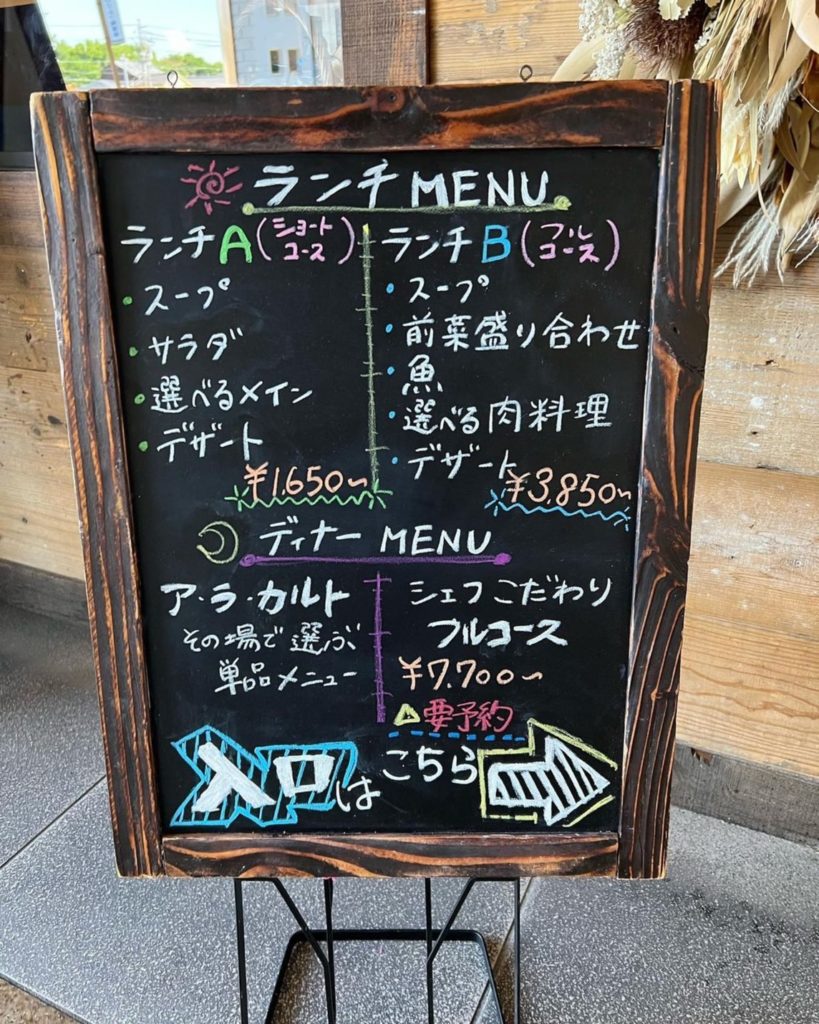 ランチMENU
ランチA(ショートコース)
・スープ
・サラダ
・選べるメイン
・デザート
¥1.650~
ランチB(フルコース)
・スープ
・前菜盛り合わせ
・魚
・選べる肉料理
・デザート
¥3.850~
ディナーMENU
ア・ラ・カルト
その場で選ぶ
単品メニュー
シェフこだわり
フルコース
¥7.700~
要予約
入口はこちら